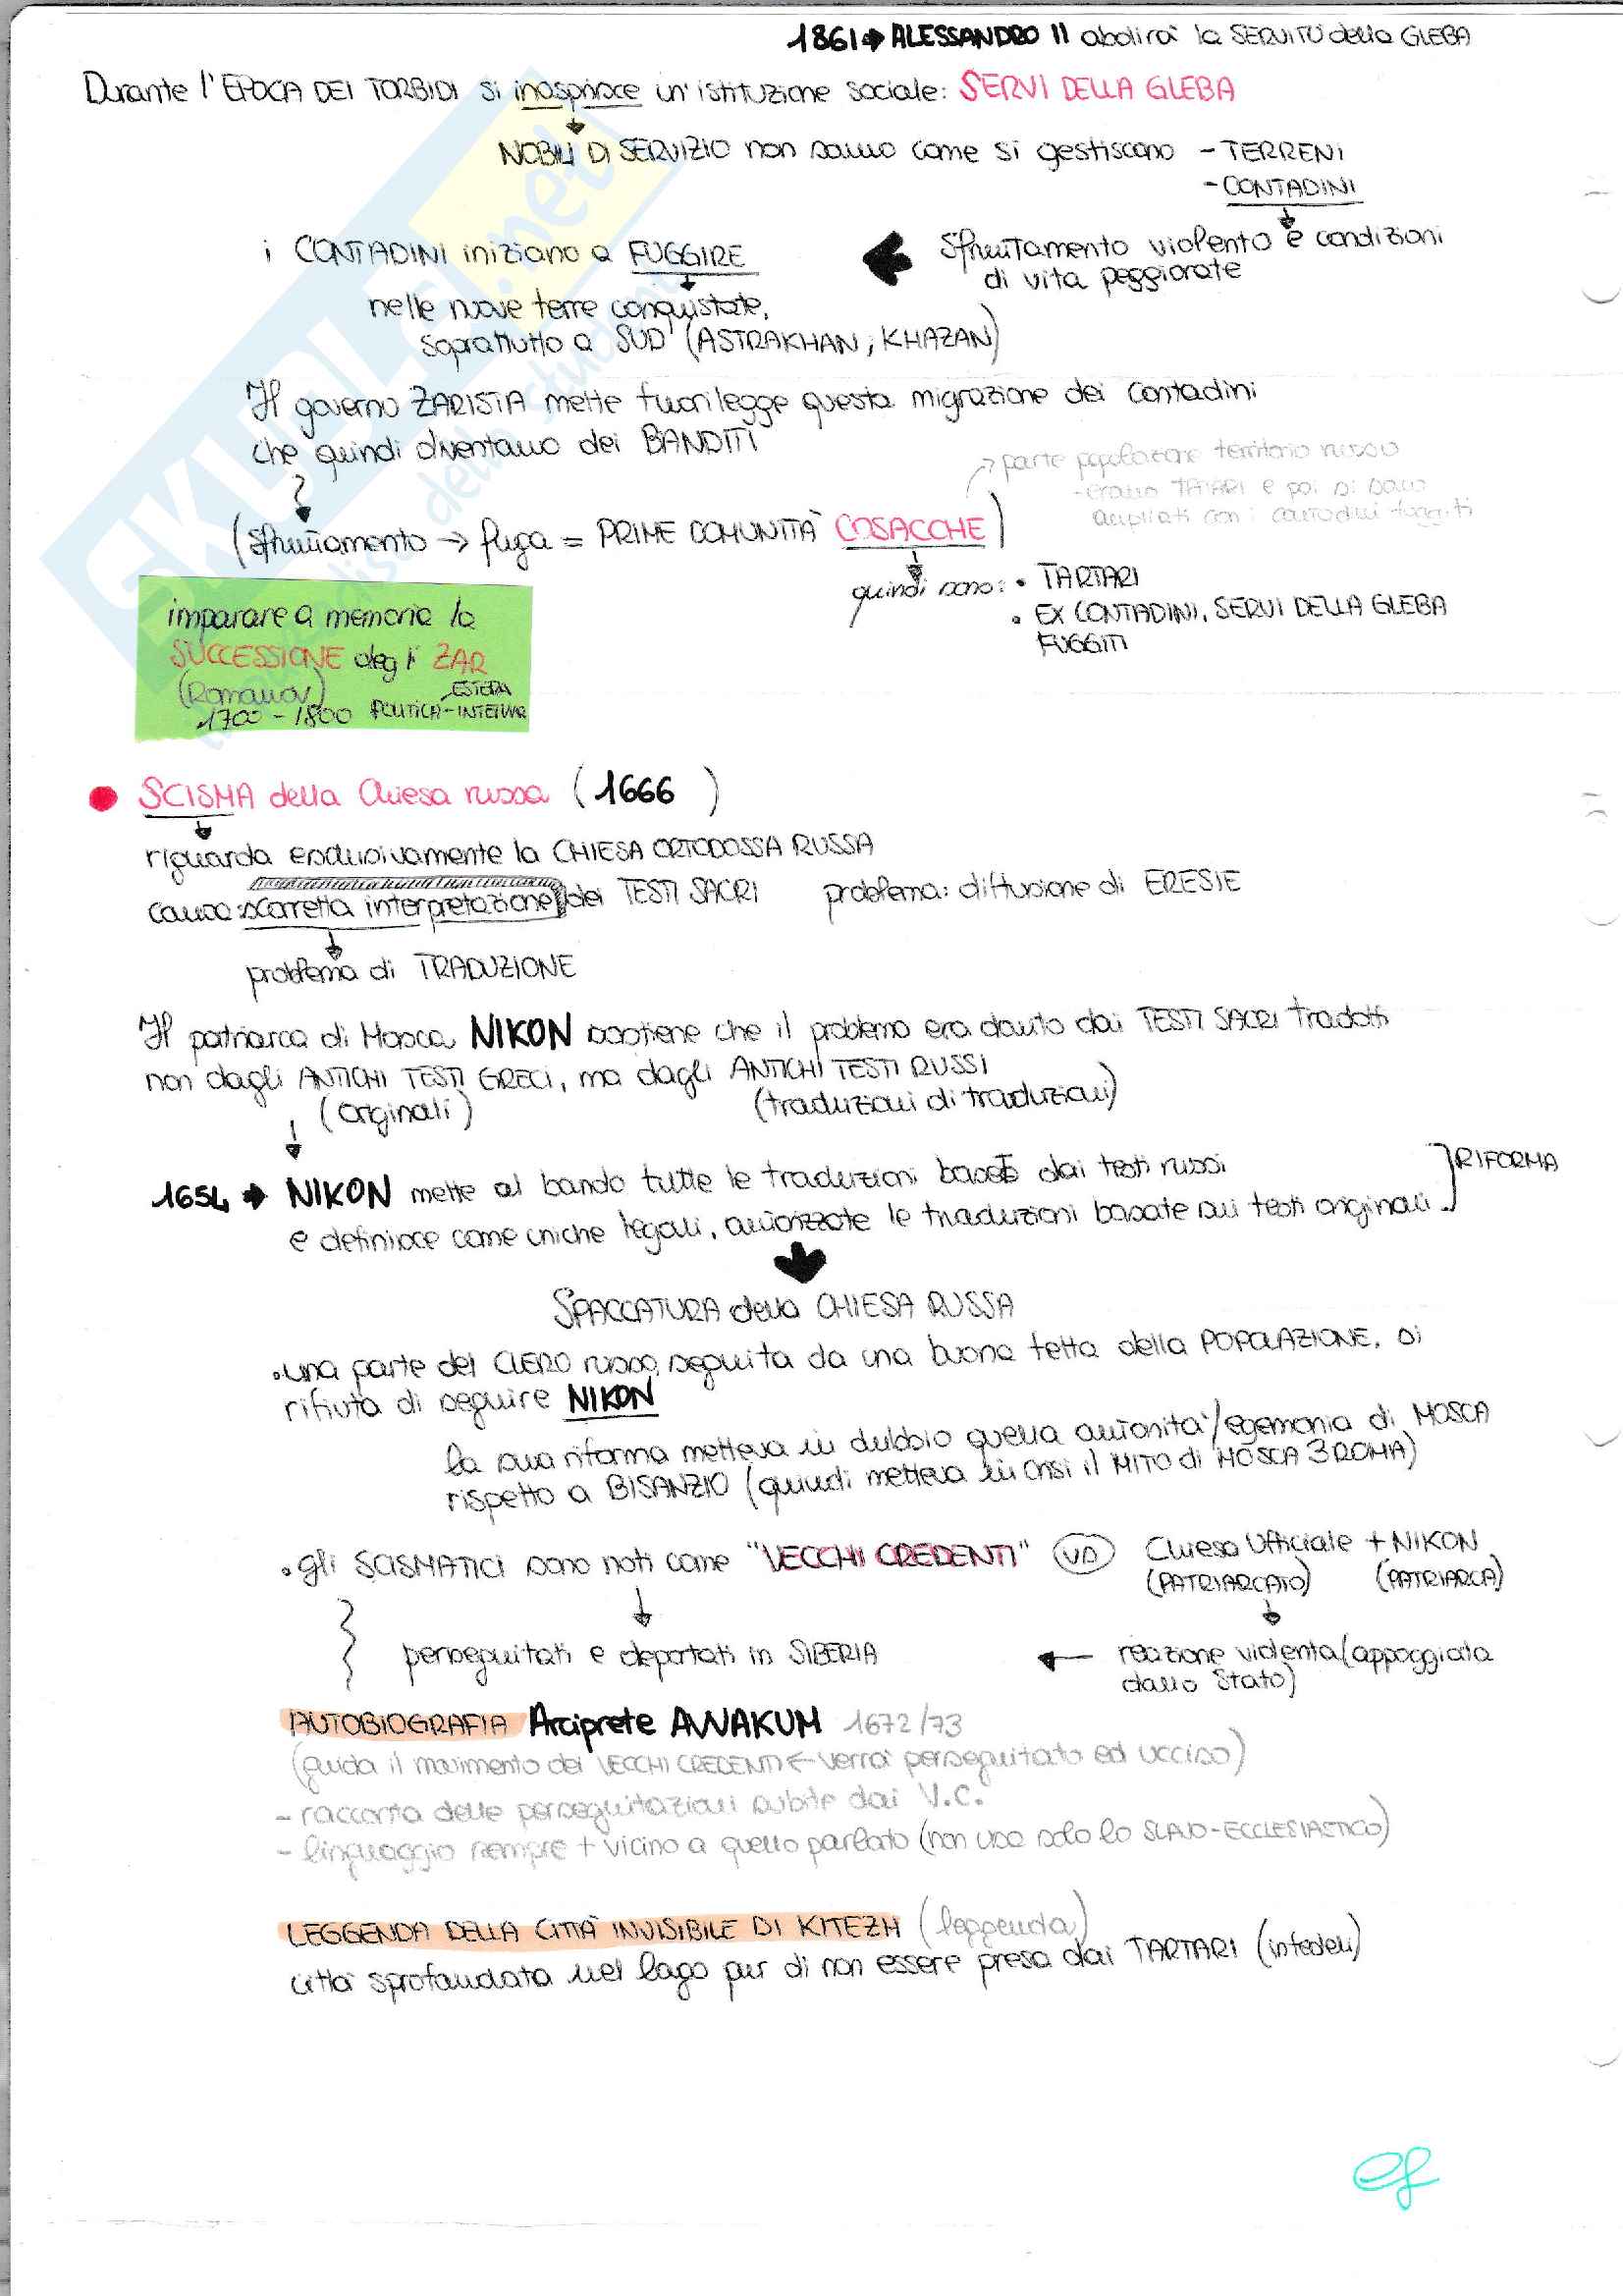 1861 → ALESSANDRO II abolirà la SERVITÙ della GLEBA
Durante l'EPOCA DEI TORBIDI si inasprisce un'istituzione sociale: SERVI DELLA GLEBA
NOBILI DI SERVIZIO non sanno come si gestiscono - TERRENI
- CONTADINI
Sfruttamento violento e condizioni
di vita peggiorate
i CONTADINI iniziano a FUGGIRE
nelle nuove terre conquistate,
soprattutto a SUD (ASTRAKHAN, KHAZAN)
Il governo ZARISTA mette fuorilegge questa migrazione dei contadini
che quindi diventano dei BANDITI
→ parte popolazione territorio russo
- erano TATARI e poi si sono
ampliati con i contadini fuggiti
(Sfruttamento → fuga = PRIME COMUNITÀ COSACCHE)
quindi sono: • TARTARI
• EX CONTADINI, SERVI DELLA GLEBA
FUGGITI
imparare a memoria la
SUCCESSIONE degli ZAR
(Romanov) ESTERA
1700 - 1800 POLITICA - INTERNA
• SCISMA della Chiesa russa (1666)
riguarda esclusivamente la CHIESA ORTODOSSA RUSSA
causa: scorretta interpretazione dei TESTI SACRI problema: diffusione di ERESIE
problema di TRADUZIONE
Il patriarca di Mosca, NIKON sostiene che il problema era dovuto dai TESTI SACRI tradotti
non dagli ANTICHI TESTI GRECI, ma dagli ANTICHI TESTI RUSSI
(originali) (traduzioni di traduzioni)
1654 → NIKON mette al bando tutte le traduzioni basate dai testi russi
e definisce come uniche legali, autorizzate le traduzioni basate sui testi originali ] RIFORMA
SPACCATURA della CHIESA RUSSA
• una parte del CLERO russo, seguita da una buona fetta della POPOLAZIONE, si
rifiuta di seguire NIKON
la sua riforma metteva in dubbio quella autorità/egemonia di MOSCA
rispetto a BISANZIO (quindi metteva in crisi il MITO di MOSCA 3 ROMA)
• gli SCISMATICI sono noti come "VECCHI CREDENTI" VS Chiesa Ufficiale + NIKON
(PATRIARCATO) (PATRIARCA)
perseguitati e deportati in SIBERIA ← reazione violenta (appoggiata
dallo Stato)
AUTOBIOGRAFIA Arciprete AVVAKUM 1672/73
(guida il movimento dei VECCHI CREDENTI ← verrà perseguitato ed ucciso)
- racconta delle persecuzioni subite dai V.C.
- linguaggio sempre + vicino a quello parlato (non usa solo lo SLAVO-ECCLESIASTICO)
LEGGENDA DELLA CITTÀ INVISIBILE DI KITEZH (leggenda)
città sprofondata nel lago pur di non essere presa dai TARTARI (infedeli)
SKUOLA.net